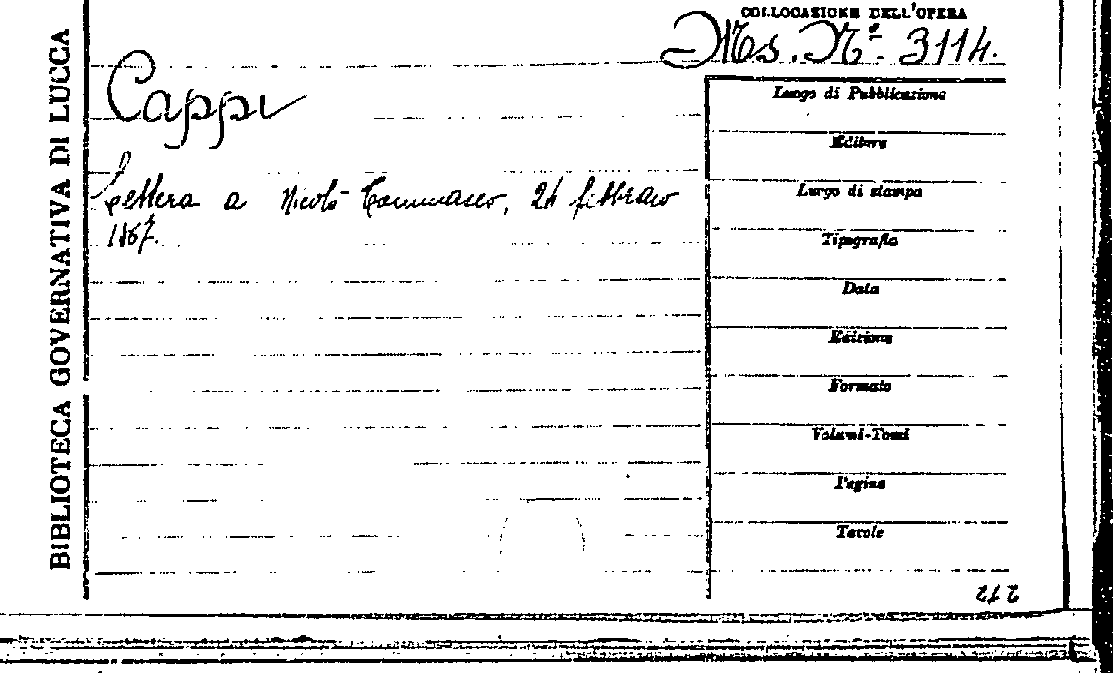 COLLOCAZIONE DELL'OPERA
Ms. Nº. 3114.
Cappi
Lettera a Nicolò Tommaseo, 24 febbraio
1867.
BIBLIOTECA GOVERNATIVA DI LUCCA
Luogo di Pubblicazione
Editore
Luogo di stampa
Tipografia
Data
Edizione
Formato
Volumi-Tomi
Pagine
Tavole
212